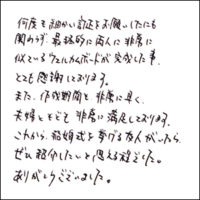 何度も細かい訂正をお願いしたにも
関わらず、最終的に両人に非常に
似ているウェルカムボードが完成した事、
とても感謝しております。
また、作成期間も非常に早く、
夫婦ともども非常に満足しております。
これから、結婚式を挙げる友人がいたら、
ぜひ紹介したいと思える程でした。
ありがとうございました。